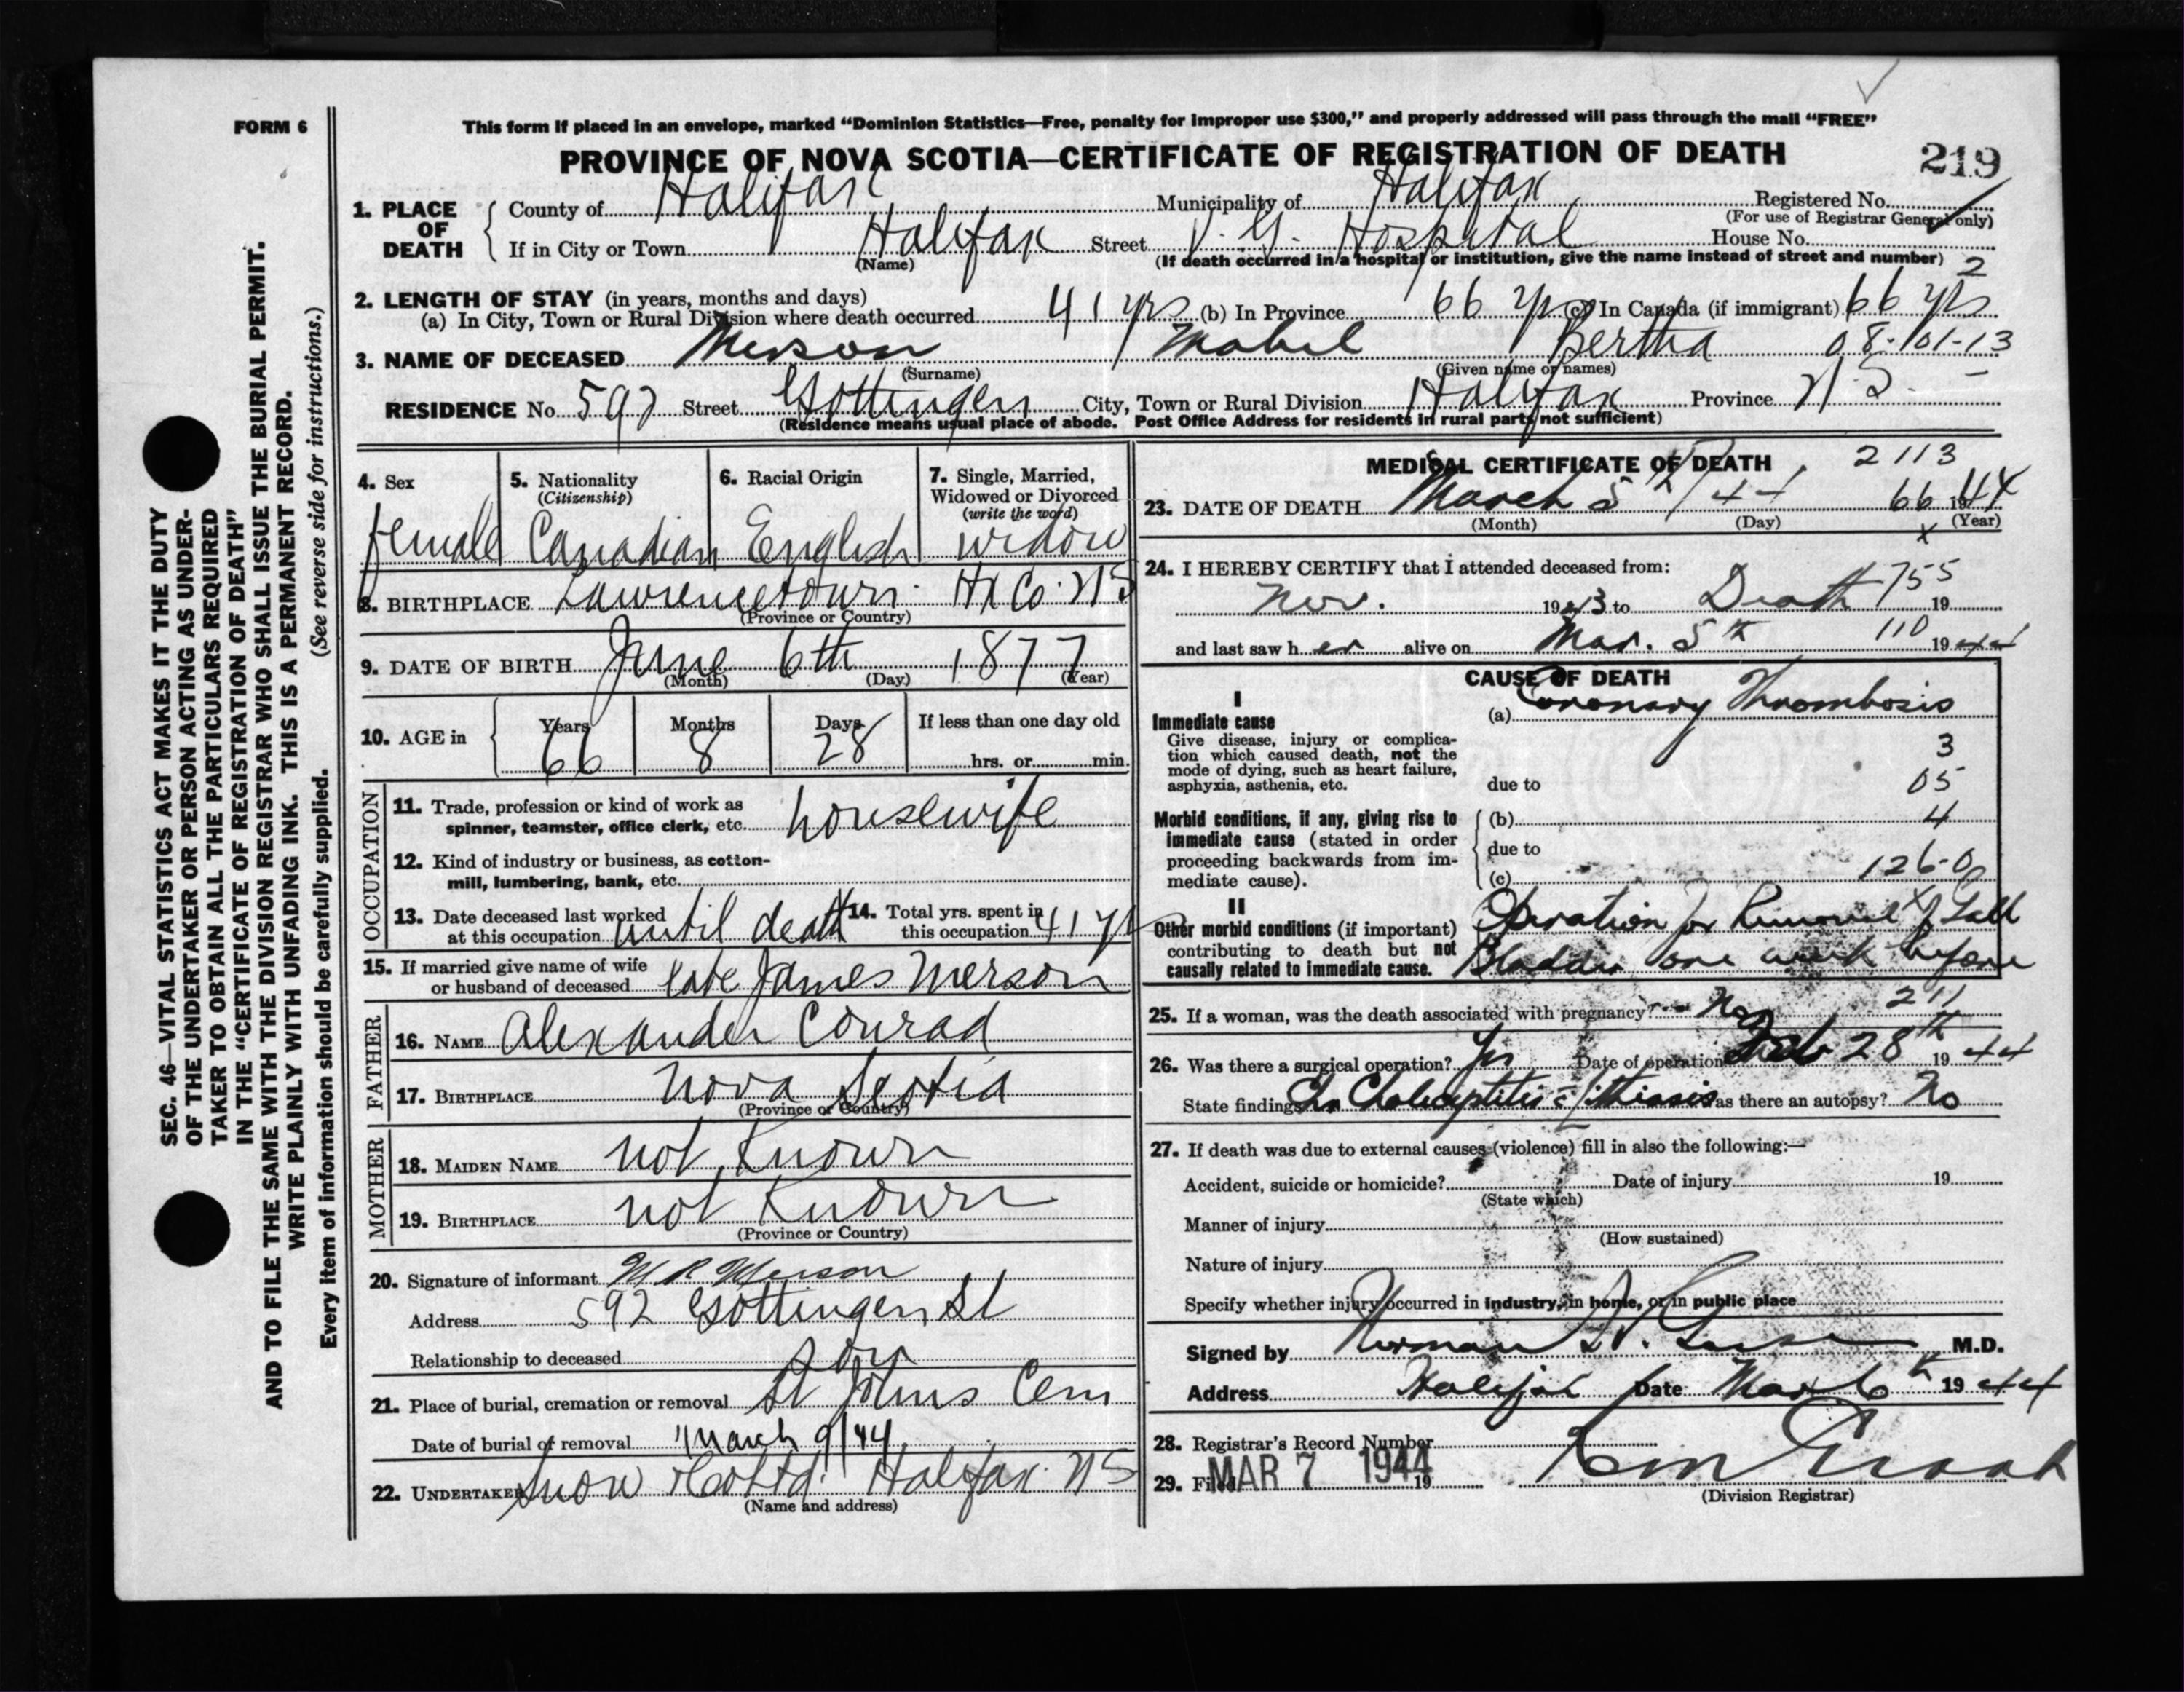 FORM 6
This form if placed in an envelope, marked “Dominion Statistics—Free, penalty for improper use $300,” and properly addressed will pass through the mail “FREE”
PROVINCE OF NOVA SCOTIA—CERTIFICATE OF REGISTRATION OF DEATH
219
1. PLACE OF DEATH
County of Halifax Municipality of Halifax Registered No.
(For use of Registrar General only)
If in City or Town Halifax Street V. G. Hospital House No.
(Name) (If death occurred in a hospital or institution, give the name instead of street and number)
2
2. LENGTH OF STAY (in years, months and days)
(a) In City, Town or Rural Division where death occurred 41 yrs (b) In Province 66 yrs (c) In Canada (if immigrant) 66 yrs
3. NAME OF DECEASED Merson Mabel Bertha 08-101-13
(Surname) (Given name or names)
RESIDENCE No. 592 Street Gottingen City, Town or Rural Division Halifax Province N.S.
(Residence means usual place of abode. Post Office Address for residents in rural parts not sufficient)
4. Sex
female
5. Nationality
(Citizenship)
Canadian
6. Racial Origin
English
7. Single, Married,
Widowed or Divorced
(write the word)
widow
8. BIRTHPLACE Lawrencetown Hx Co. NS
(Province or Country)
9. DATE OF BIRTH June 6th 1877
(Month) (Day) (Year)
10. AGE in
Years Months Days If less than one day old
66 8 28 hrs. or min.
OCCUPATION
11. Trade, profession or kind of work as
spinner, teamster, office clerk, etc. housewife
12. Kind of industry or business, as cotton-
mill, lumbering, bank, etc.
13. Date deceased last worked
at this occupation until death
14. Total yrs. spent in
this occupation 41 yrs
15. If married give name of wife
or husband of deceased late James Merson
FATHER
16. NAME Alexander Conrad
17. BIRTHPLACE Nova Scotia
(Province or Country)
MOTHER
18. MAIDEN NAME not Known
19. BIRTHPLACE not Known
(Province or Country)
20. Signature of informant M R Merson
Address 592 Gottingen St
Relationship to deceased son
21. Place of burial, cremation or removal St Johns Cem
Date of burial of removal March 9/44
22. UNDERTAKER Snow & Co Ltd. Halifax NS
(Name and address)
MEDICAL CERTIFICATE OF DEATH 2113
23. DATE OF DEATH March 5th/44 66 1944
(Month) (Day) (Year)
x
24. I HEREBY CERTIFY that I attended deceased from:
Nov. 1943 to Death 755 19
and last saw h er alive on Mar. 5th 110 1944
CAUSE OF DEATH
I
Immediate cause
Give disease, injury or complica-
tion which caused death, not the
mode of dying, such as heart failure,
asphyxia, asthenia, etc.
(a) Coronary Thrombosis
3
due to 05
Morbid conditions, if any, giving rise to
immediate cause (stated in order
proceeding backwards from im-
mediate cause).
(b) 4
due to
(c) 126-0
II
Other morbid conditions (if important)
contributing to death but not
causally related to immediate cause.
Operation for Removal of Gall
Bladder one week before
25. If a woman, was the death associated with pregnancy? No 211
26. Was there a surgical operation? Yes Date of operation Feb 28th 1944
State findings Ch Cholecystitis c Lithiasis Was there an autopsy? No
27. If death was due to external causes (violence) fill in also the following:—
Accident, suicide or homicide? Date of injury 19
(State which)
Manner of injury
(How sustained)
Nature of injury
Specify whether injury occurred in industry, in home, or in public place
Signed by Norman H. M.D.
Address Halifax Date Mar 6th 1944
28. Registrar's Record Number
29. Filed MAR 7 1944 19
(Division Registrar)
SEC. 46—VITAL STATISTICS ACT MAKES IT THE DUTY
OF THE UNDERTAKER OR PERSON ACTING AS UNDER-
TAKER TO OBTAIN ALL THE PARTICULARS REQUIRED
IN THE “CERTIFICATE OF REGISTRATION OF DEATH”
AND TO FILE THE SAME WITH THE DIVISION REGISTRAR WHO SHALL ISSUE THE BURIAL PERMIT.
WRITE PLAINLY WITH UNFADING INK. THIS IS A PERMANENT RECORD.
Every item of information should be carefully supplied. (See reverse side for instructions.)